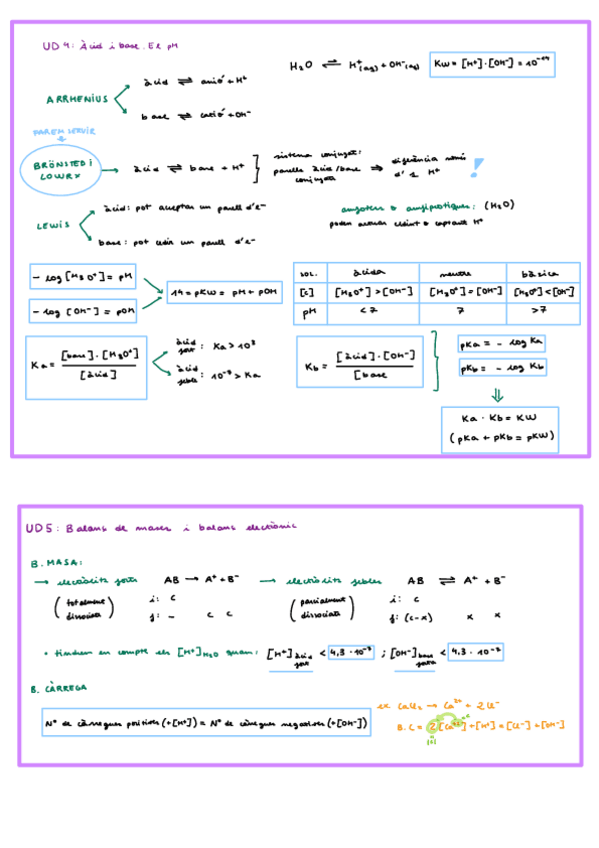 UD 4: Àcid i base. El pH
H₂O ⇌ H⁺(aq) + OH⁻(aq)
Kw = [H⁺]·[OH⁻] = 10⁻¹⁴
ARRHENIUS
àcid ⇌ anió⁻ + H⁺
base ⇌ catió⁺ + OH⁻
FAREM SERVIR
BRÖNSTED i LOWRY
àcid ⇌ base + H⁺
sistema conjugat:
parella àcid/base
conjugada
⇒ diferència només
d' 1 H⁺ !
LEWIS
àcid: pot acceptar un parell d'e⁻
base: pot cedir un parell d'e⁻
amfòters o amfipròtiques: (H₂O)
poden actuar cedint o captant H⁺
- log [H₃O⁺] = pH
- log [OH⁻] = pOH
14 = pKw = pH + pOH
SOL. àcida neutre bàsica
[c] [H₃O⁺] > [OH⁻] [H₃O⁺] = [OH⁻] [H₃O⁺] < [OH⁻]
pH < 7 7 > 7
Ka = [base]·[H₃O⁺] / [àcid]
àcid fort: Ka > 10³
àcid feble: 10⁻³ > Ka
Kb = [àcid]·[OH⁻] / [base
pKa = - log Ka
pKb = - log Kb
Ka · Kb = Kw
(pKa + pKb = pKw)
UD 5: Balanç de masses i balanç electrònic
B. MASA:
→ electròlits forts AB → A⁺ + B⁻
(totalment dissociats)
i: c
f: - c c
→ electròlits febles AB ⇌ A⁺ + B⁻
(parcialment dissociats)
i: c
f: (c-x) x x
• tindrem en compte els [H⁺]H₂O quan: [H⁺] àcid fort < 4,3 · 10⁻⁷ ; [OH⁻] base forta < 4,3 · 10⁻⁷
B. CÀRREGA
Nº de càrregues positives (+[H⁺]) = Nº de càrregues negatives (+[OH⁻])
ex CaCl₂ → Ca²⁺ + 2Cl⁻
B.C = 2[Ca²⁺] + [H⁺] = [Cl⁻] + [OH⁻]